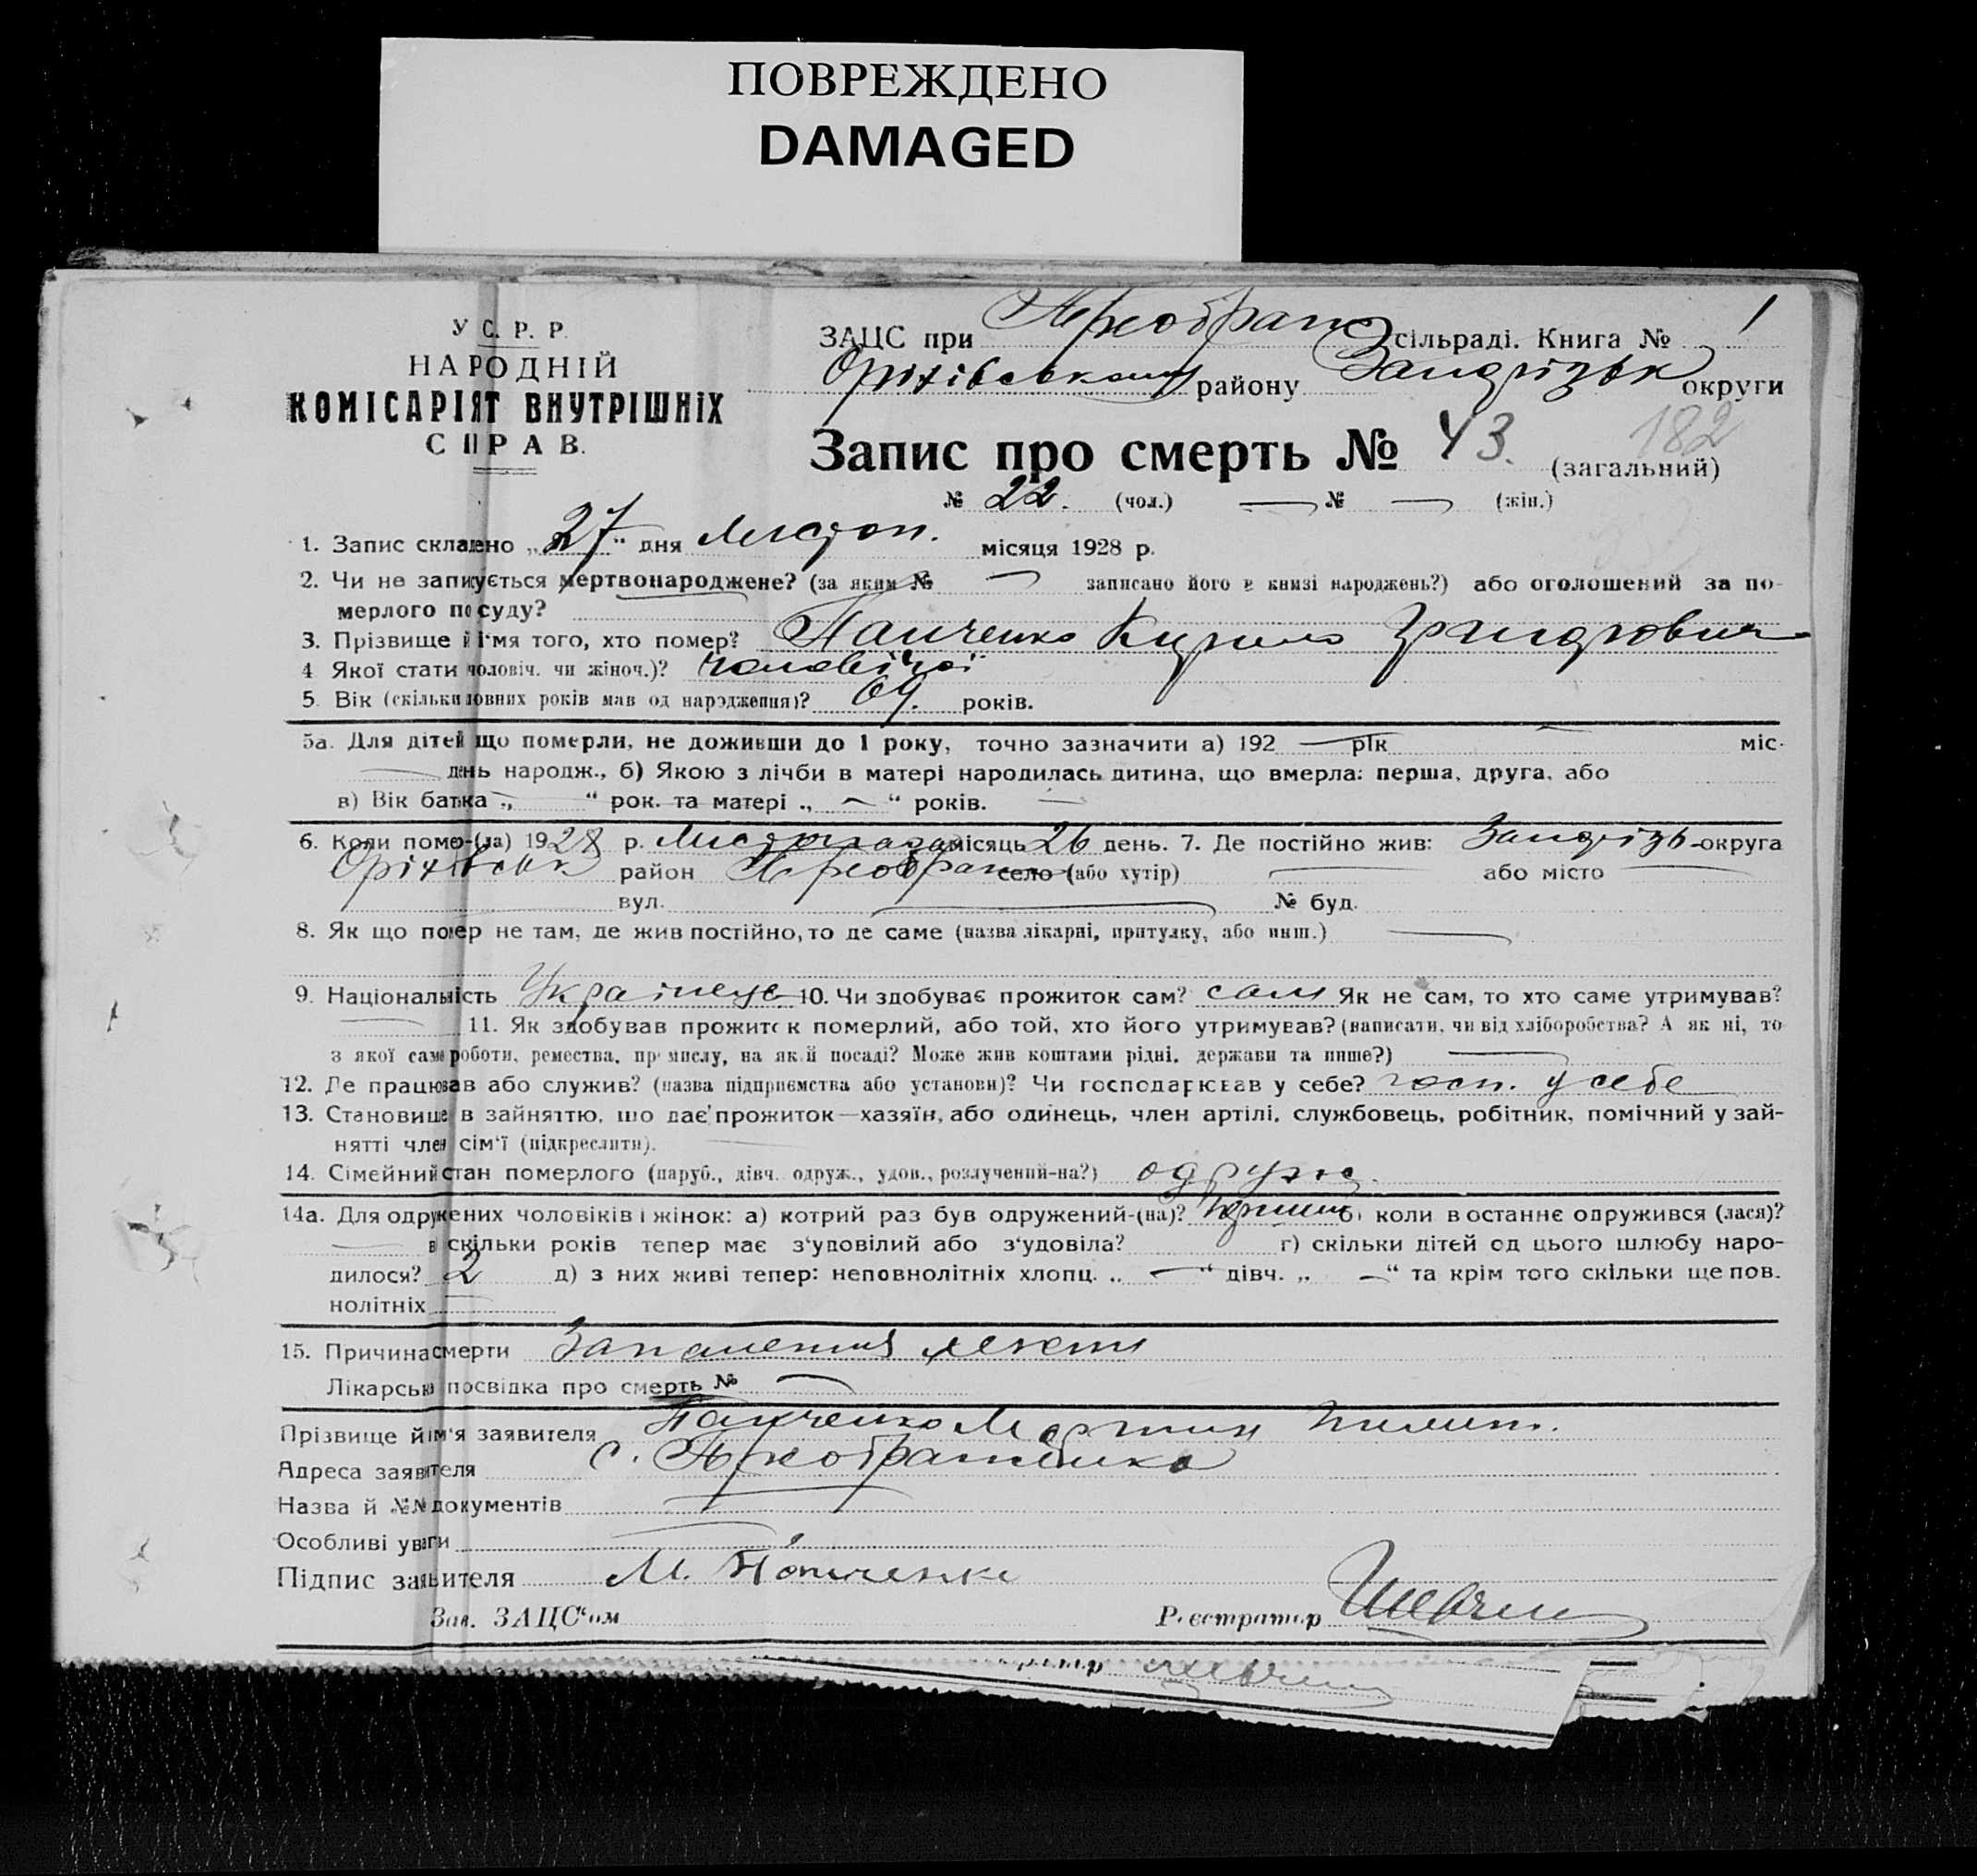 ПОВРЕЖДЕНО
DAMAGED
У С. Р. Р.
НАРОДНІЙ
КОМІСАРІЯТ ВНУТРІШНІХ
СПРАВ.
ЗАЦС при Преображ сільраді. Книга № 1
Оріхівському району Запорізьк округи
Запис про смерть № 43. (загальний) 182
№ 22. (чол.) — № — (жін.)
1. Запис складено „27“ дня Листоп. місяця 1928 р.
2. Чи не записується мертвонароджене? (за яким № — записано його в книзі народжень?) або оголошений за по-
мерлого по суду?
3. Прізвище й ім'я того, хто помер? Панченко Кирило
4 Якої стати чоловіч. чи жіноч.)? чоловічої
5. Вік (скільки повних років мав од народження)? 69. років.
5а. Для дітей що померли, не доживши до 1 року, точно зазначити а) 192 — рік міс.
— день народж., б) Якою з лічби в матері народилась дитина, що вмерла: перша, друга, або
в) Вік батька „ — “ рок. та матері „ — “ років. —
6. Коли помер-(ла) 1928 р. Листопада місяць 26 день. 7. Де постійно жив: Запорізь-округа
Оріхівськ район Преображен село (або хутір) — або місто —
— вул. — № буд.
8. Як що помер не там, де жив постійно, то де саме (назва лікарні, притулку, або инш.) —
9. Національність Українець 10. Чи здобував прожиток сам? сам Як не сам, то хто саме утримував?
— 11. Як здобував прожиток померлий, або той, хто його утримував? (написати, чи від хліборобства? А як ні, то
з якої саме роботи, ремества, промислу, на якій посаді? Може жив коштами рідні, держави та инше?) —
12. Де працював або служив? (назва підприємства або установи)? Чи господарював у себе? госп. у себе
13. Становище в зайняттю, що дає прожиток—хазяїн, або одинець, член артілі, службовець, робітник, помічний у зай-
нятті член сім'ї (підкреслити). —
14. Сімейний стан померлого (паруб., дівч. одруж., удов., розлучений-на?) одруж.
14а. Для одружених чоловіків і жінок: а) котрий раз був одружений-(на)? б) коли в останнє одружився (лася)?
— в скільки років тепер має з'удовілий або з'удовіла? г) скільки дітей од цього шлюбу наро-
дилося? 2 д) з них живі тепер: неповнолітніх хлопц. „ — “ дівч. „ — “ та крім того скільки ще пов.
нолітніх —
15. Причина смерти Запалення легень
Лікарська посвідка про смерть № —
Прізвище й ім'я заявителя Панченко Мартин
Адреса заявителя с. Преображенка
Назва й №№ документів —
Особливі уваги —
Підпис заявителя М. Панченко
Зав. ЗАЦС'ом Реєстратор